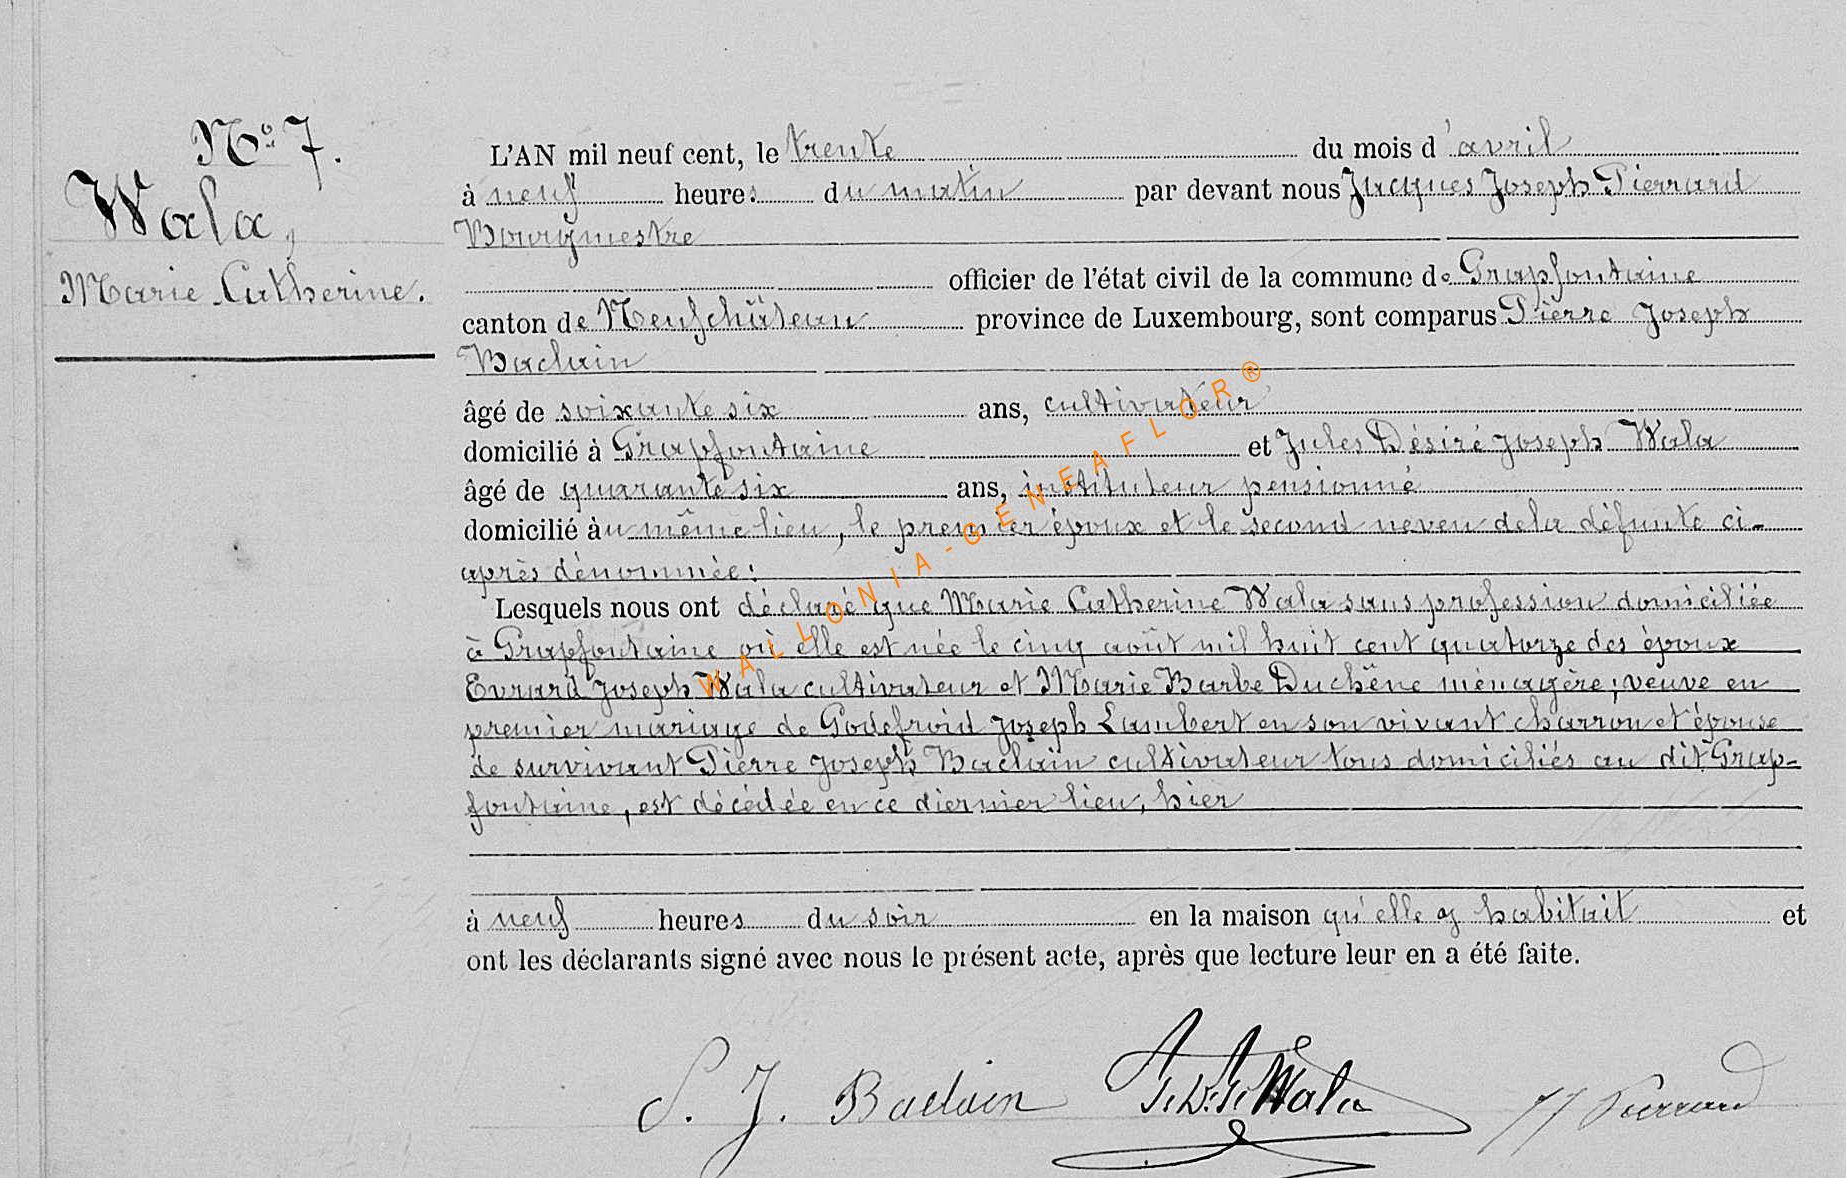 N.º 7.
Wala,
Marie Catherine.
L'AN mil neuf cent, le trente du mois d'avril
à neuf heures du matin par devant nous Jacques Joseph Pierrard
Bourgmestre
officier de l'état civil de la commune de Grapfontaine
canton de Neufchâteau province de Luxembourg, sont comparus Pierre Joseph
Baclain
âgé de soixante six ans, cultivateur
domicilié à Grapfontaine et Jules Désiré Joseph Wala
âgé de quarante six ans, instituteur pensionné
domicilié àu même lieu, le premier époux et le second neveu de la défunte ci-
après dénommée:
Lesquels nous ont déclaré que Marie Catherine Wala sans profession domiciliée
à Grapfontaine où elle est née le cinq août mil huit cent quatorze des époux
Evrard Joseph Wala cultivateur et Marie Barbe Duchêne ménagère; veuve en
premier mariage de Godefroid Joseph Lambert en son vivant charron et épouse
de survivant Pierre Joseph Baclain cultivateur tous domiciliés au dit Grap-
fontaine, est décédée en ce diernier lieu, hier
à neuf heures du soir en la maison qu'elle y habitait et
ont les déclarants signé avec nous le présent acte, après que lecture leur en a été faite.
P. J. Baclain J. D. J. Wala JJ Pierrard
WALLONIA-GENEAFLOR®